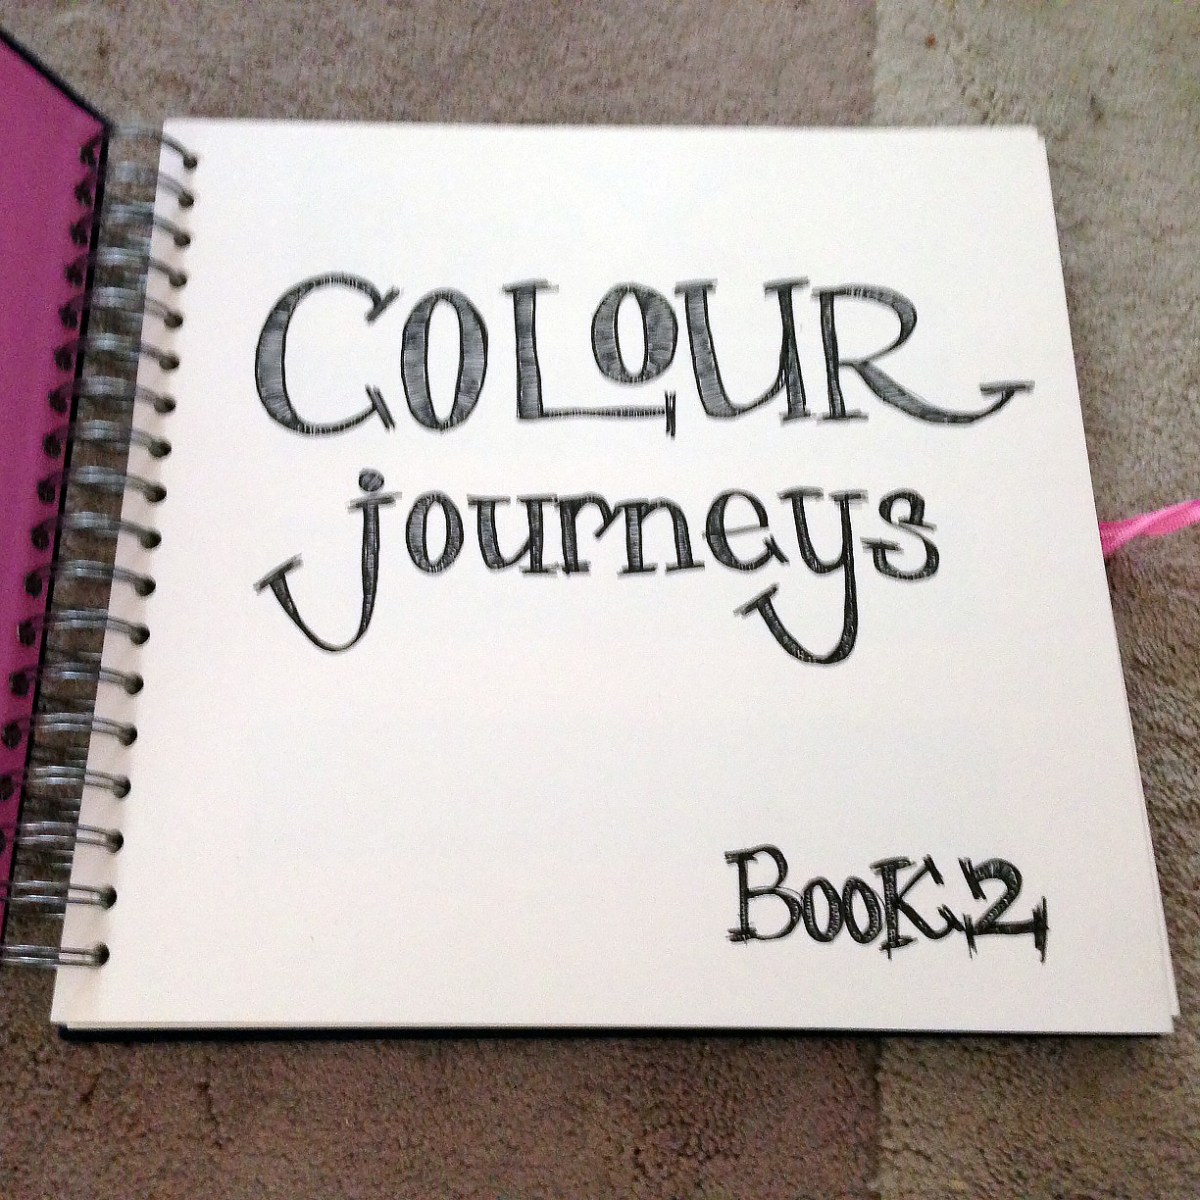 COLOUR
journeys
BOOK 2